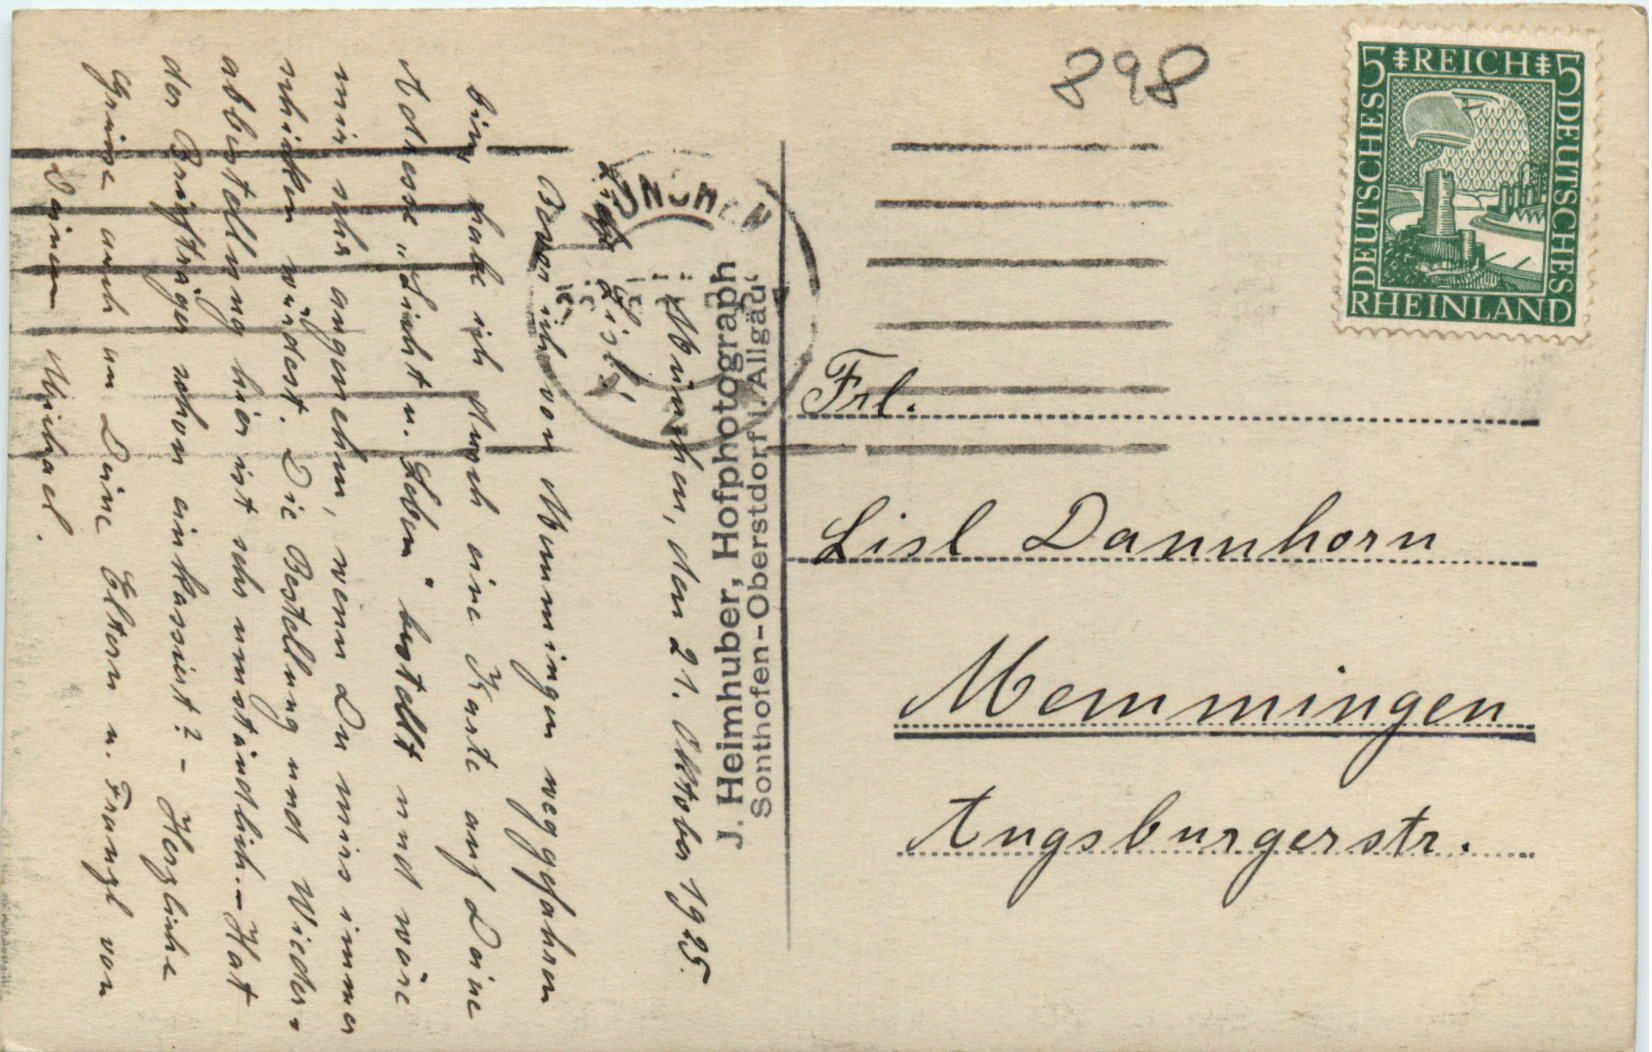 München, den 21. Oktober 1925.
Liebe Lisl!
Bevor ich von Memmingen weggefahren
bin, habe ich durch eine Karte auf Deine
Adresse „Licht u. Leben" bestellt und wäre
mir sehr angenehm, wenn Du mirs immer
schicken würdest. Die Bestellung und Wieder-
abbestellung hier ist sehr umständlich. - Hat
der Briefträger schon einkassiert? - Herzliche
Grüsse auch an Deine Eltern u. Franzl von
Deinem Michael.
J. Heimhuber, Hofphotograph
Sonthofen-Oberstdorf i. Allgäu
MÜNCHEN
898
5 REICH 5
DEUTSCHES
DEUTSCHES
RHEINLAND
Frl.
Lisl Dannhorn
Memmingen
Augsburgerstr.